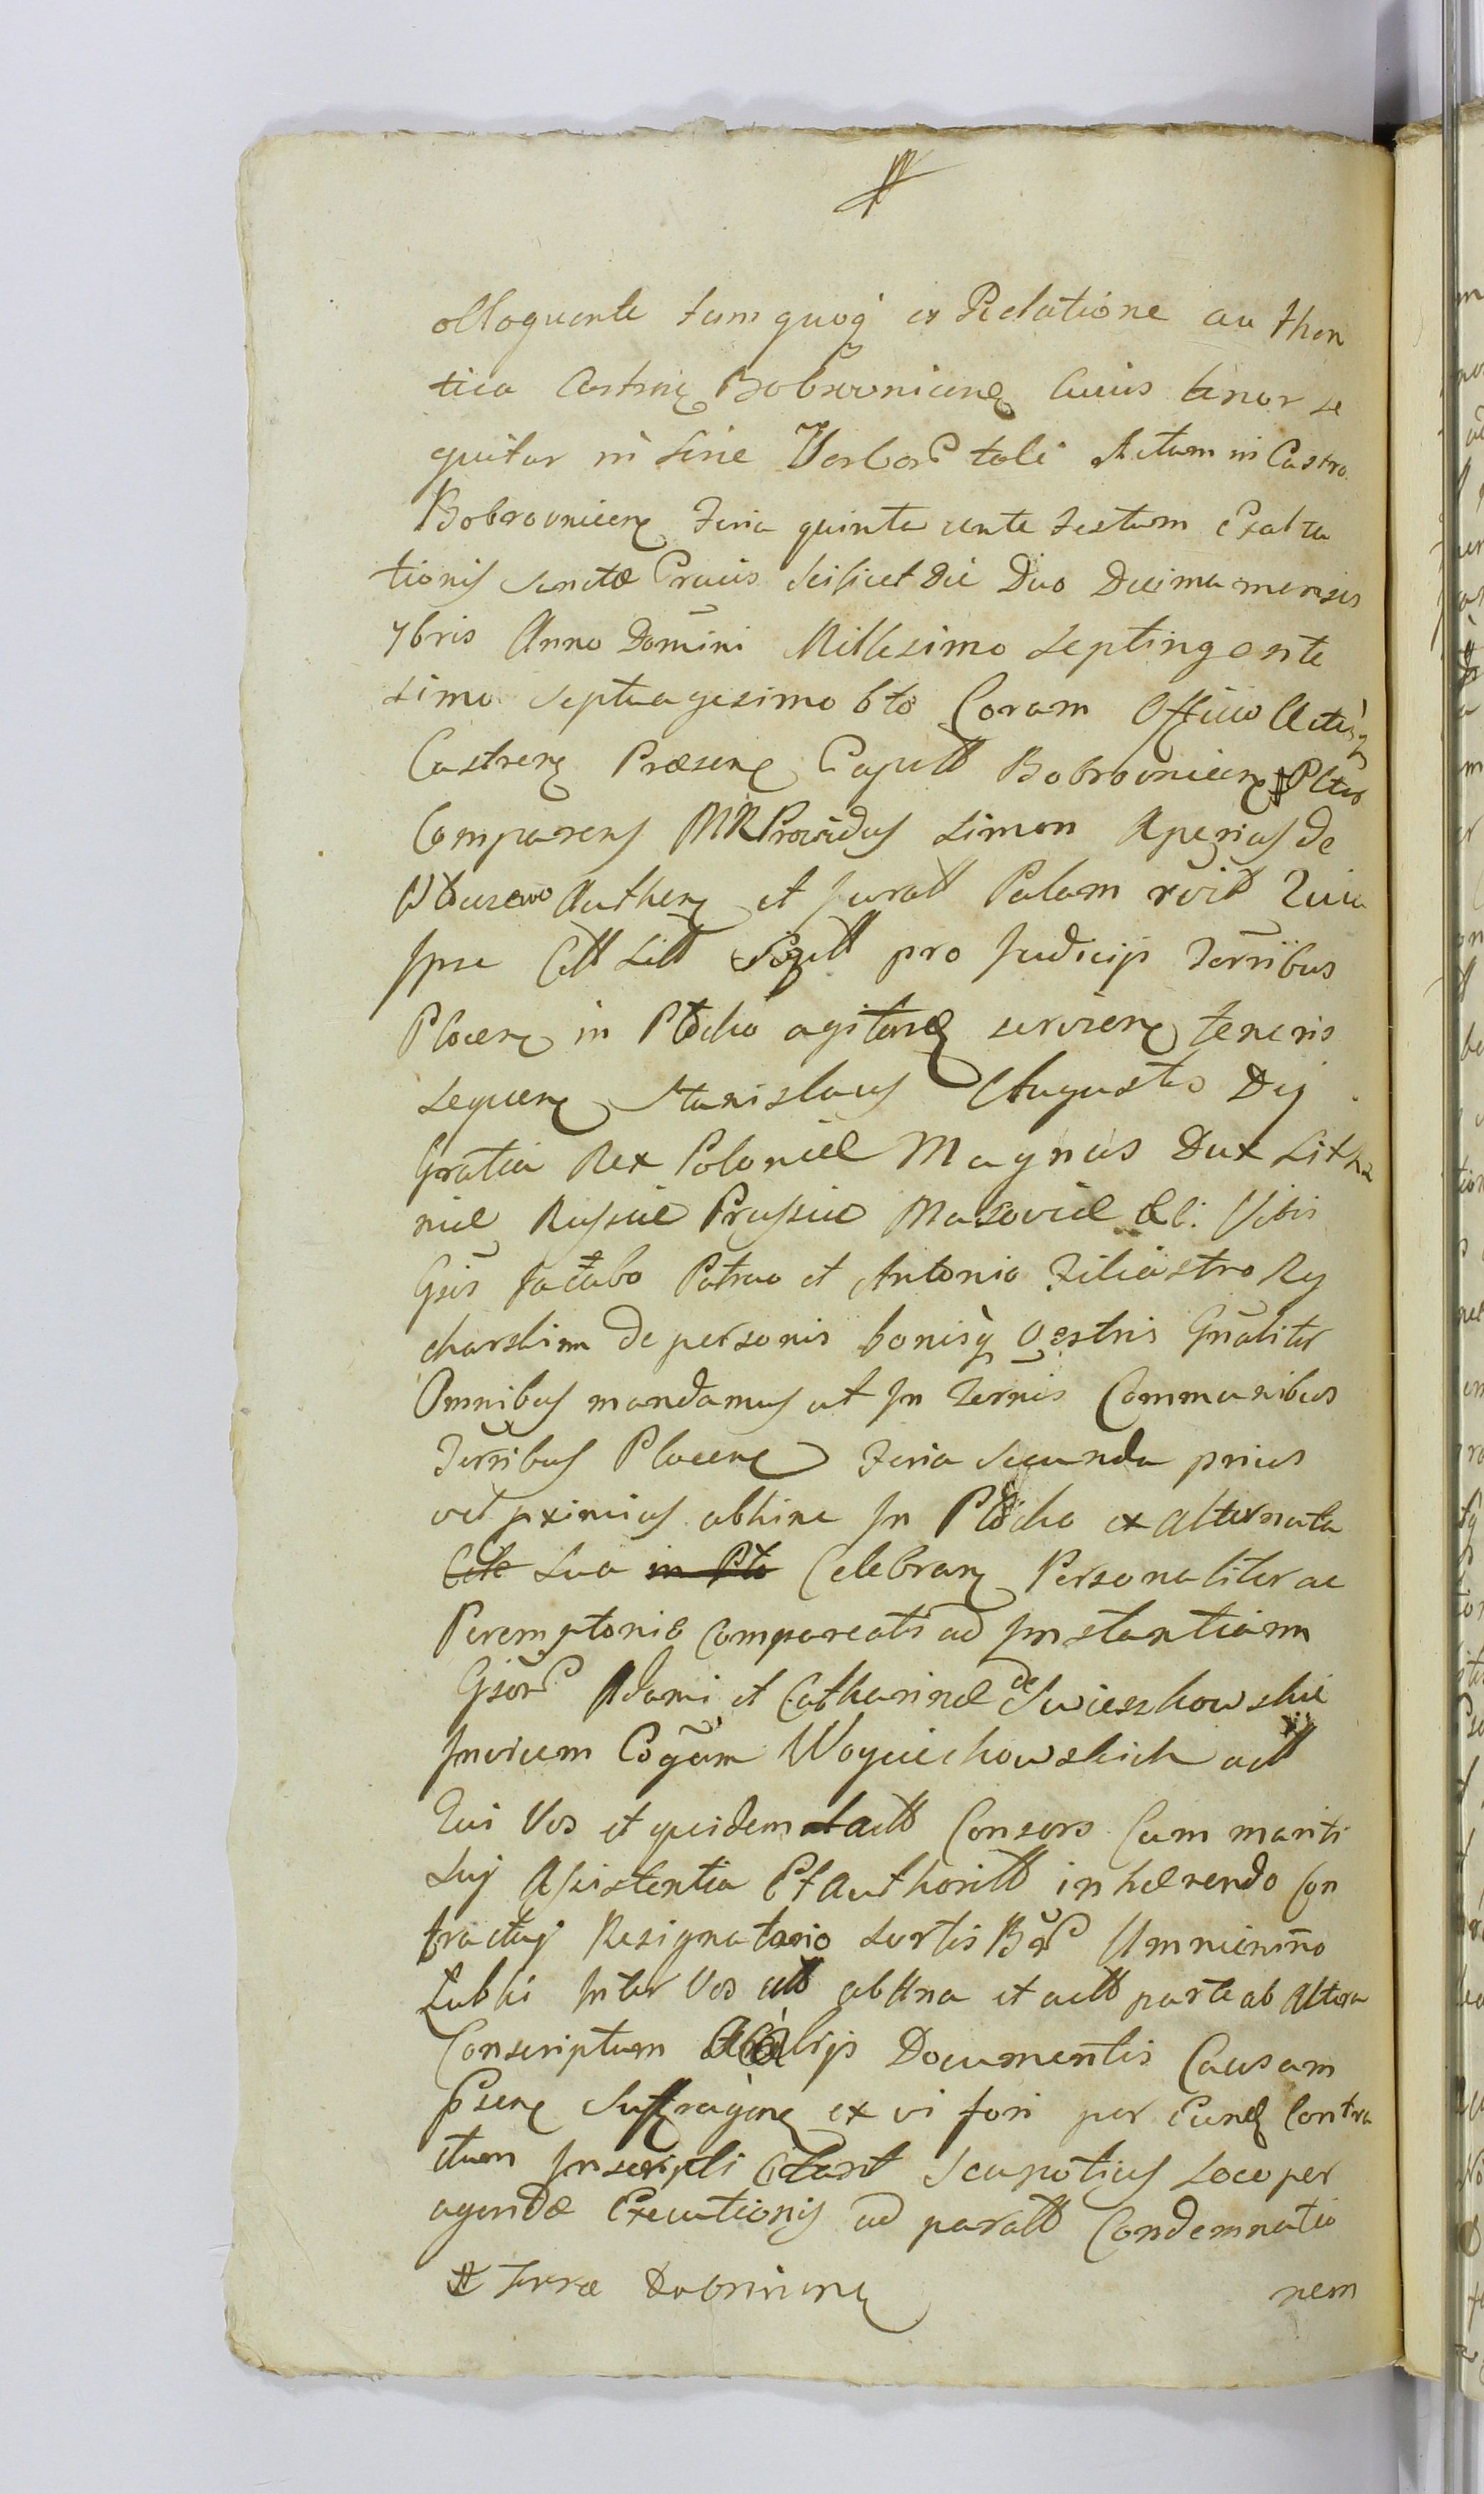 alloquente tum quoq ex Relatione authen
tica Castren Bobrovnicen Cuius tenor se
quitur in serie Verbor tali Actum in Castro
Bobrovnicen Feria quinta ante Festum Exalta
tionis Sanctæ Crucis scilicet die Duo Decima mensis
7bris Anno Domini Millesimo Septingente
simo Septuagesimo 6to Coram Officio Actisq
Castren Præsen Capitt Bobrovnicen # Plter
Comparens MR Providus Simon Aperias de
Authen et Juratt Palam
Ipse Citt Litt pro Judicijs Terribus
Plocen in Płocko agitand servien teneris
sequen Stanislaus Augusto Dej
Gratia Rex Poloniæ Magnus Dux Litha
niæ Russiæ Prussiæ Masoviæ &c: Vobis
Gsis Jacobo Patruo et Antonio Filiastro Ry
charskim de personis bonisq Vestris Gnaliter
Omnibus mandamus ut In Termis Communibus
Terribus Plocen Feria Secunda prius
vel pximius abhinc In Płocko ex alternata
Cele sua in Pło Celebran Personaliter ac
Peremptorie Compareatis ad Instantiam
Gsor Adami et Catharinæ de Swieszkowskie
Invicem Cogum Woyciechowskich actt
Qui Vos et quidem actt Consors Cum mariti
Suj Assistentia Et Authoritt inhærendo Con
tractuj Resignatorio Sortis Bor Umnienino
Lubki Inter Vos ab Una et actt parte ab Altera
Conscriptum Alijs Documentis Causam
Psen Suffragan ex vi fori per Eund Contra
ctum Inscripti Citant Scapotius Loco per
agendæ Executionis ad paratt Condemnatio
# Terræ Dobrinen nem